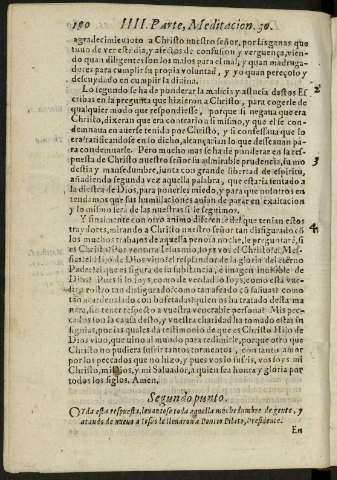 190 IIII. Parte, Meditacion. 30.
agradecimiento a Christo nuestro señor, por las ganas que
tuuo de ver este dia, y afectos de confusion y verguença, vien-
do quan diligentes son los malos para el mal, y quan madruga-
dores para cumplir su propia voluntad, y yo quan pereçoso y
descuydado en cumplir la diuina.
Lo segundo se ha de ponderar la malicia y astucia destos Es-
cribas en la pregunta que hizieron a Christo, para cogerle de
qualquier modo que respondiesse, porque si negaua que era
Christo, dixeran que era contrario a si mismo, y que el se con-
demnaua en auerse tenido por Christo, y si confessaua que lo
era ratificandose en lo dicho, alcançauan lo que desseauan pa-
ra condemnarle. Pero mucho mas se ha de ponderar en la res-
puesta de Christo nuestro señor su admirable prudencia, su mo
destia y mansedumbre, junta con grande libertad de espiritu,
añadiendo segunda vez aquella palabra, que estaria sentado a
la diestra de Dios, para ponerles miedo, y para que nosotros en
tendamos que sus humillaciones auian de parar en exaltacion
y lo mismo será de las nuestras si le seguimos.
Y finalmente con otro animo diferente del que tenian estos
traydores, mirando a Christo nuestro señor tan disfigurado cō
los muchos trabajos de aquella penosa noche, le preguntaré, si
es Christo? Por ventura Iesus mio, soys vos el Christo? el Mes-
sias? el Hijo de Dios viuo? el resplandor de la gloria del eterno
Padre? el que es figura de su substancia, è imagen inuisible de
Dios? Pues si lo soys, como de verdad lo soys, como está vues-
tro rostro tan disfigurado? como tan afeado cō saliuas? como
tan acardenalado con bofetadas? quien os ha tratado desta ma
nara, sin tener respecto a vuestra venerable persona? Mis pec-
cados son la causa desto, y vuestra charidad ha tomado estas in
signias, por las quales da testimonio de que es Christo Hijo de
Dios viuo, que vino al mundo para redimirle, porque otro que
Christo no pudiera sufrir tantos tormentos, con tanto amor
por los peccados que no hizo, y pues vos lo sufris, vos soys mi
Christo, mi Dios, y mi Saluador, a quien sea honra y gloria por
todos los siglos, Amen.
Segundo punto.
Oyda esta respuesta, leuantose toda aquella muchedumbre de gente, y
atando de nueuo a Iesus le lleuaron a Poncio Pilato, Presidente.
En
2
3
4